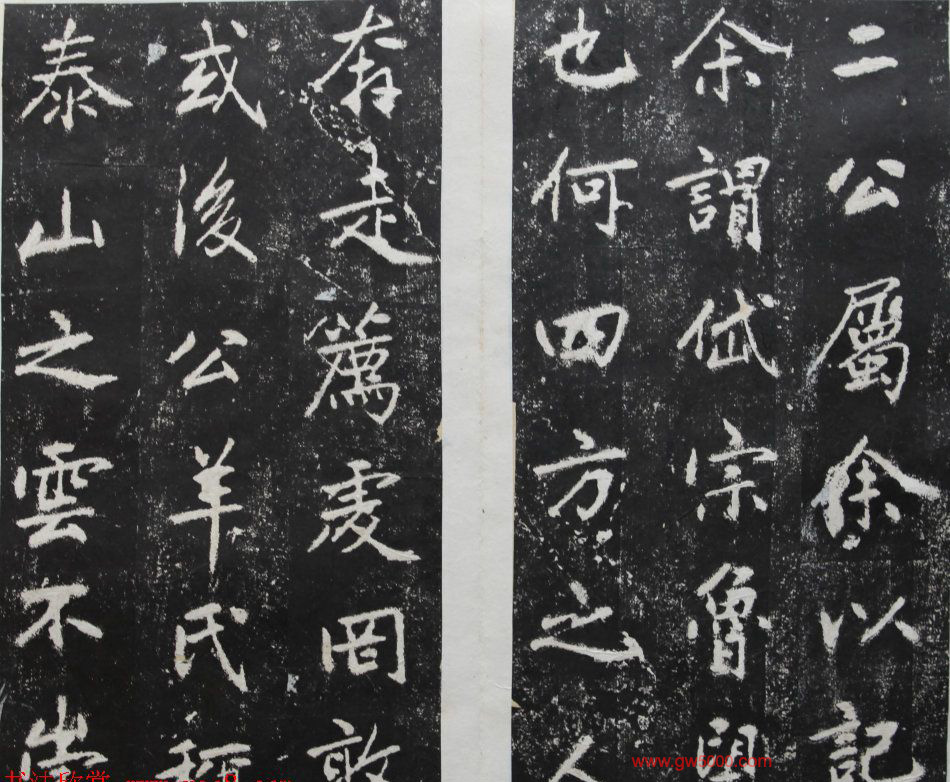 二公屬余以記
余謂岱宗魯望
也何四方之人
奔走薦虔罔敢
或後公羊氏稱
泰山之雲不崇
书法欣赏